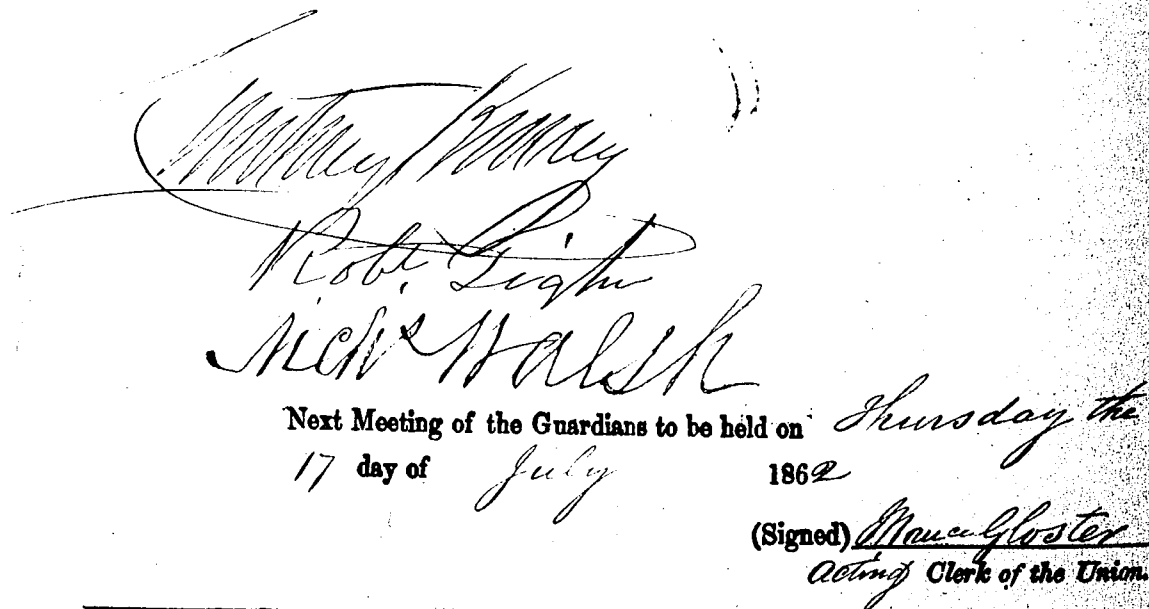 Robt
Nichs Walsh
Next Meeting of the Guardians to be held on Thursday the
17 day of July 1862
(Signed) Gloster
Acting Clerk of the Union.